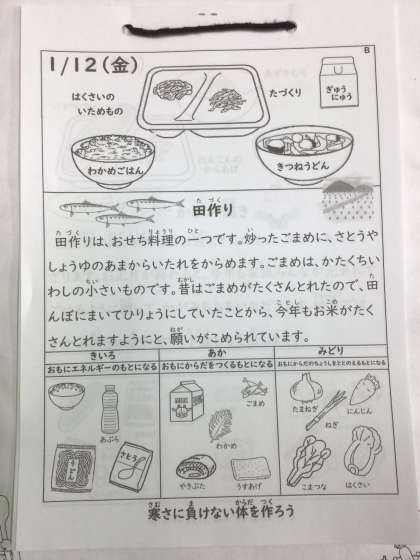 B
1/12(金)
はくさいの
いためもの
たづくり
ぎゅう
にゅう
わかめごはん
きつねうどん
田作り
田作りは、おせち料理の一つです。炒ったごまめに、さとうや
しょうゆのあまからいたれをからめます。ごまめは、かたくちい
わしの小さいものです。昔はごまめがたくさんとれたので、田
んぼにまいてひりょうにしていたことから、今年もお米がたく
さんとれますようにと、願いがこめられています。
きいろ
おもにエネルギーのもとになる
あか
おもにからだをつくるもとになる
みどり
おもにからだのちょうしをととのえるもとになる
あぶら
うどん
さとう
ごまめ
わかめ
やきぶた
うすあげ
たまねぎ
にんじん
ねぎ
こまつな
はくさい
寒さに負けない体を作ろう